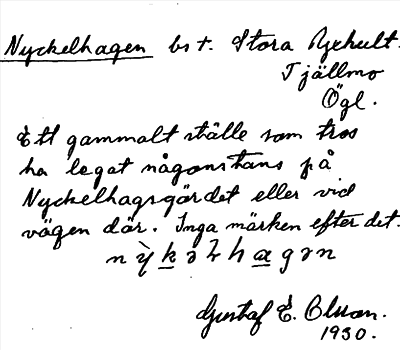 Nyckelhagen bst. Stora Ryckult.
Tjällmo
Ögl.
Ett gammalt ställe som tros
ha legat någonstans på
Nyckelhagsgärdet eller vid
vägen där. Inga märken efter det.
nỳkəlhagən
Gustaf E. Olsson.
1930.